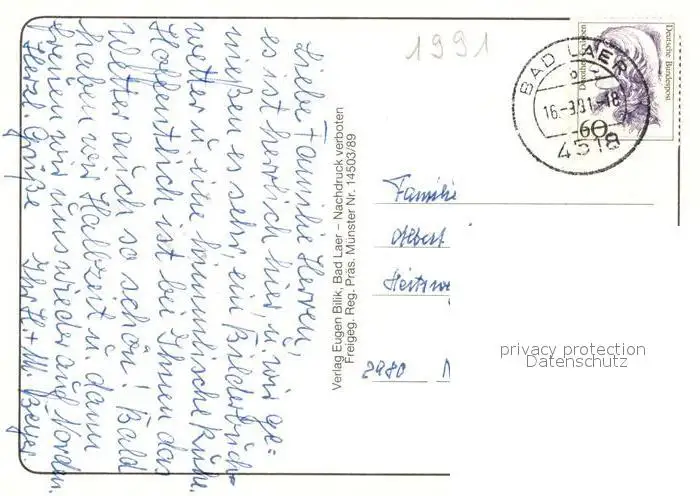 1991
Liebe Familie Herren,
es ist herrlich hier, u. wir ge=
nießen es sehr, ein Bilderbuch-
wetter u. eine himmlische Ruhe.
Hoffentlich ist bei Ihnen das
Wetter auch so schön! Bald
haben wir Halbzeit u. dann
freuen wir uns wieder auf Norden.
Herzl. Grüße
Ihr H. + M. Beyer
Verlag Eugen Bilik, Bad Laer – Nachdruck verboten
Freigeg. Reg. Präs. Münster Nr. 14503/89
BAD LAER
16.-9.91.-18
4518
Deutsche Bundespost
60
Familie
Albert
2980
privacy protection
Datenschutz